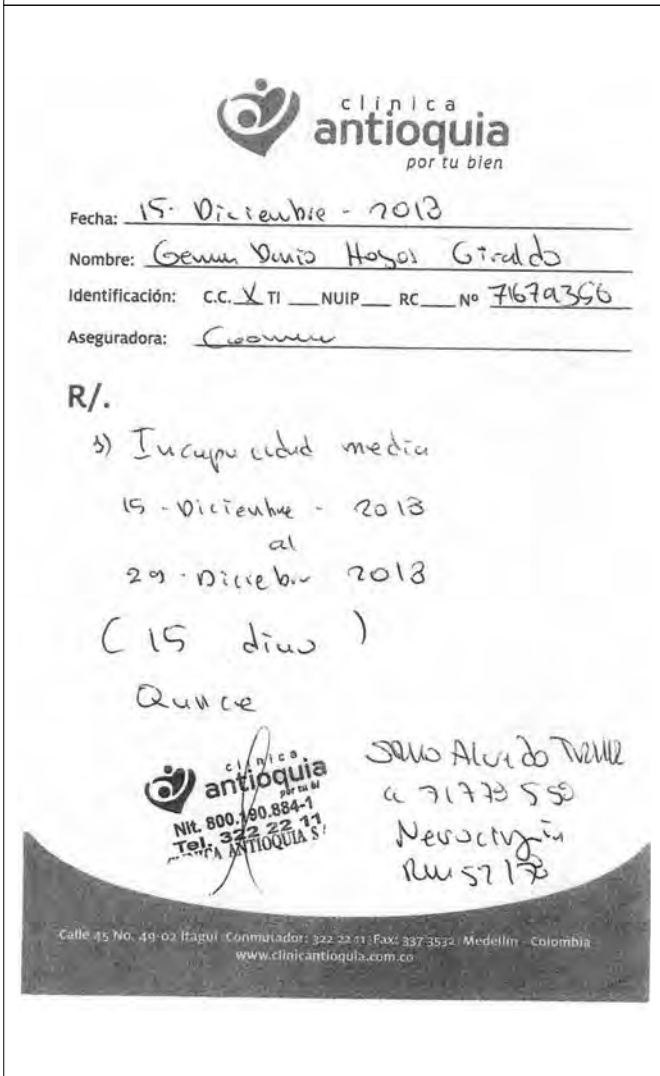 clínica
antioquia
por tu bien
Fecha: 15 - Diciembre - 2013
Nombre: Hoyos Giraldo
Identificación: C.C. X TI ___ NUIP ___ RC ___ Nº
Aseguradora: Coomeva
R/.
1) Incapacidad medica
15 - Diciembre - 2013
al
29 - Diciebre 2013
( 15 dias )
Quince
clínica
antioquia
por tu bi
Nit. 800.190.884-1
Tel. 322 22 11
CLINICA ANTIOQUIA S
Alvarado
cc
Neurocirugía
RM
Calle 45 No. 49-02 Itagüí Conmutador: 322 22 11 Fax: 337 3532 Medellín - Colombia
www.clinicantioquia.com.co